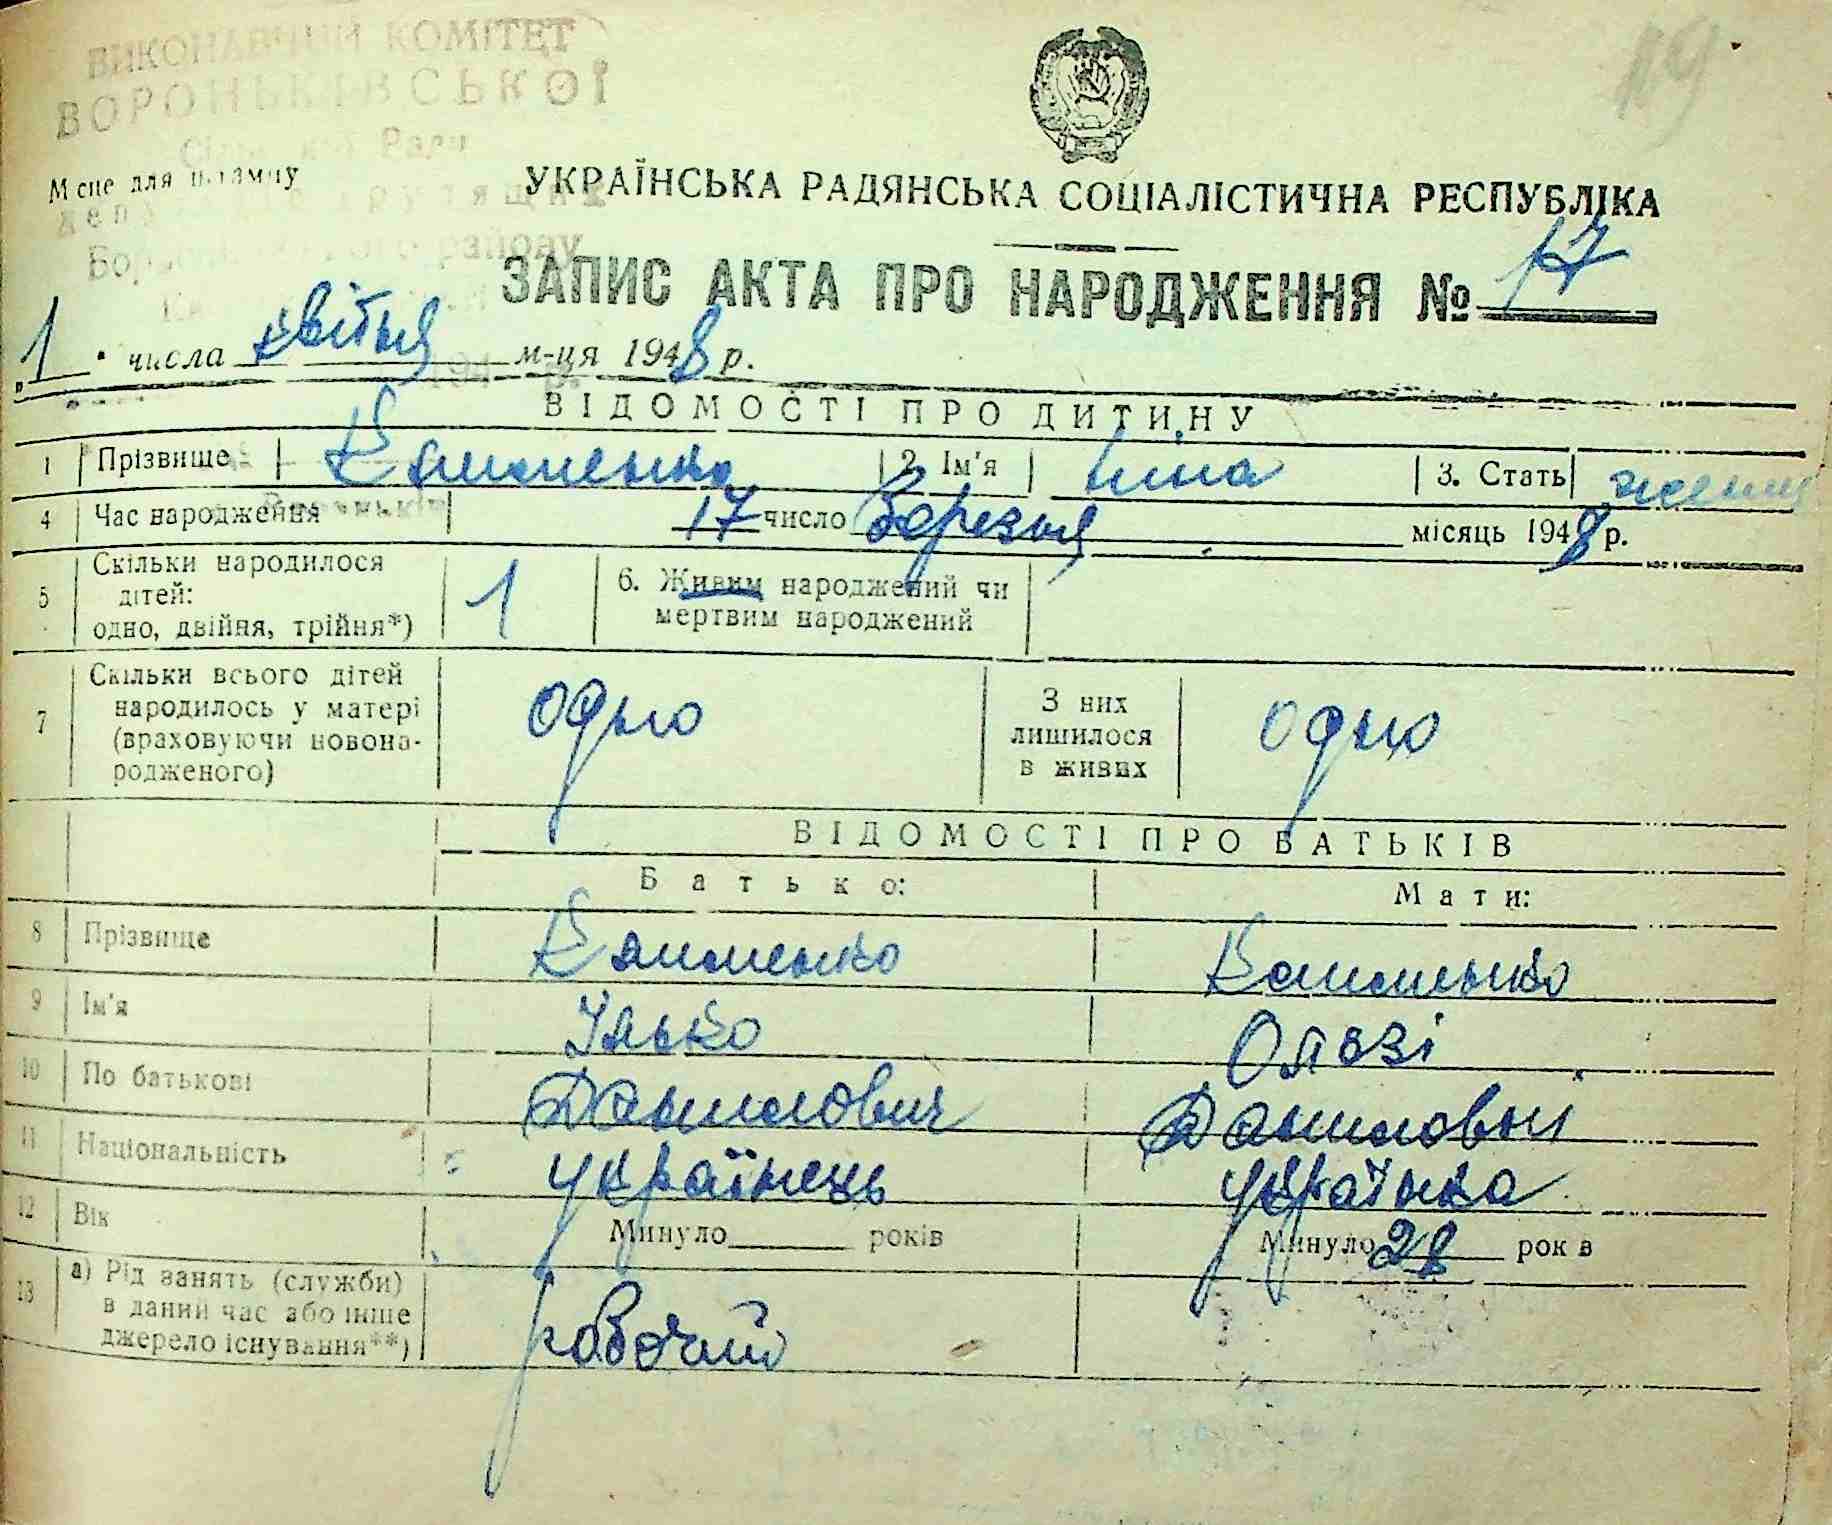 ВИКОНАВЧИЙ КОМІТЕТ
ВОРОНЬКІВСЬКОЇ
Сільської Ради
депутатів трудящих
району
Місце для штампу
119
УКРАЇНСЬКА РАДЯНСЬКА СОЦІАЛІСТИЧНА РЕСПУБЛІКА
ЗАПИС АКТА ПРО НАРОДЖЕННЯ № 17
„1" числа квітня м-ця 1948 р.
ВІДОМОСТІ ПРО ДИТИНУ
1 Прізвище 2. Ім'я Ніна 3. Стать жіноч
4 Час народження 17 число Березня місяць 1948 р.
5 Скільки народилося дітей: одно, двійня, трійня*) 1 6. Живим народжений чи мертвим народжений
7 Скільки всього дітей народилось у матері (враховуючи новонародженого) одно З них лишилося в живих одно
ВІДОМОСТІ ПРО БАТЬКІВ
Батько: Мати:
8 Прізвище
9 Ім'я Ілько Ользі
10 По батькові Данилович Даниловні
11 Національність українець українка
12 Вік Минуло років Минуло 28 років
13 а) Рід занять (служби) в даний час або інше джерело існування**) робочий